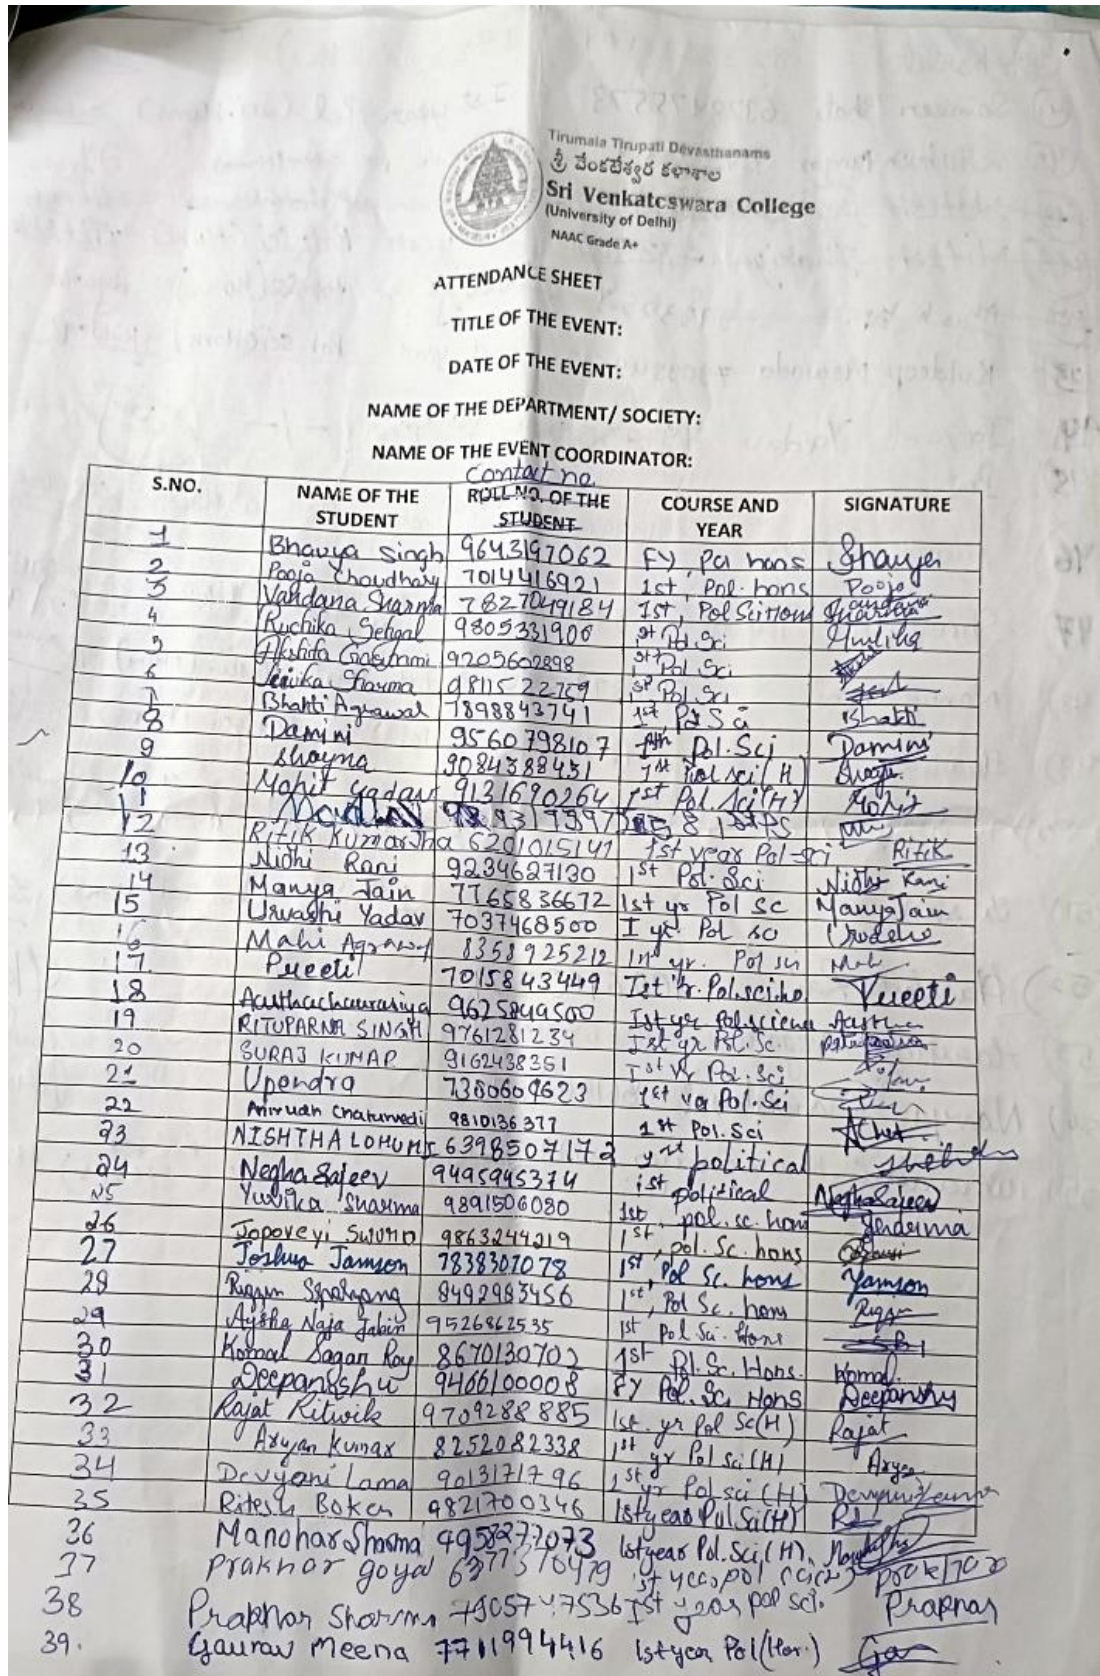 Tirumala Tirupati Devasthanams
శ్రీ వేంకటేశ్వర కళాశాల
Sri Venkateswara College
(University of Delhi)
NAAC Grade A+
ATTENDANCE SHEET
TITLE OF THE EVENT:
DATE OF THE EVENT:
NAME OF THE DEPARTMENT/ SOCIETY:
NAME OF THE EVENT COORDINATOR:
Contact no.
S.NO. NAME OF THE STUDENT ROLL NO. OF THE STUDENT COURSE AND YEAR SIGNATURE
1 Bhavya Singh 9643197062 FY, Pol hons
2 Pooja Choudhary 7014416921 1st, Pol. hons Pooja
3 Vandana Sharma 7827049184 1st, Pol Sci Hons
4 Ruchika Sehgal 9805331906 1st Pol Sci
5 Akshita Goswami 9205602898 1st Pol Sci
6 Sharma 1st Pol Sci
7 Bhakti Agrawal 7898843741 1st, Pol Sci Bhakti
8 Damini 9560798107 Pol. Sci Damini
9 Shayna 9084388431 1st Pol sci (H)
10 Mohit yadav 9131690264 1st Pol. Sci (H) Mohit
11
12 Ritik Kumar Jha 6201015141 1st year Pol-sci Ritik
13 Nidhi Rani 9234627130 1st Pol. Sci Nidhi Rani
14 Manya Jain 77665836672 1st yr Pol Sc Manya Jain
15 Urvashi Yadav 7037468500 I yr. Pol sc
16 Mahi Agrawal 8358925212 yr. Pol sci
17. Preeti 7015843449 Ist Yr. Pol.sci.ho Preeti
18 Aastha chaurasiya 9625849500 Ist yr Pol.science Aastha
19 RITUPARNA SINGH 9761281234 Ist yr Pol. Sc.
20 SURAJ KUMAR 9162438351 Ist yr Pol. Sci
21 Upendra 7380609623 1st yer Pol. Sci
22 Anirudh Chaturvedi 9810136377 1st Pol. Sci
23 NISHTHA LOHUMI 6398507172 political
24 Negha Sajeev 9495945374 1st political Negha Sajeev
25 Yuvika Sharma 9891506080 1st pol. sc. hons Sharma
26 9863244219 1st, pol. Sc. hons
27 Joshua Jamson 7838307078 1st, Pol Sc. hons Jamson
28 Rigzin 8492983456 1st, Pol Sc. hons Rigzin
29 Aysha Naja Jabin 9526862535 1st Pol Sci. Hons
30 Komal Sagan Roy 8670130702 1st Pl. Sc. Hons. Komal
31 Deepanshu 9466100008 FY Pol. Sc. Hons Deepanshu
32 Rajat Ritwik 9709288885 1st. yr Pol Sc(H) Rajat
33 Aryan Kumar 8252082338 1st yr Pol Sci (H) Aryan
34 Devyani Lama 9013171796 1st yr Pol sci (H)
35 Ritesh Boken 9821700346 1st year Pol Sci(H)
36 Manohar Sharma 9958277073 1st year Pol. Sci, (H).
37 Prakhar goyal 1st year pol
38 Prakhar Sharma 7905747536 Ist year pol sci. Prakhar
39. Gaurav Meena 7711994416 1st year Pol (Hor.)